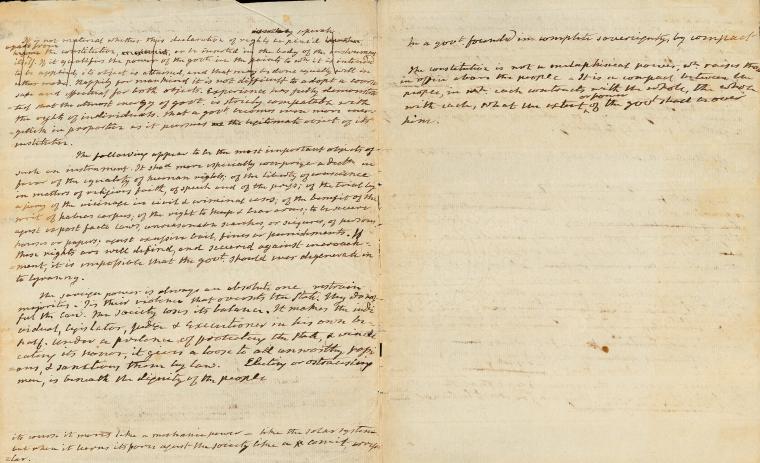 It is not material whether this declaration of rights be
the constitution, or be inserted in the body of the instrument
itself. If it qualifies the power of the govt. in the points to wh. it is intended
to be applied, its object is attained, and that may be done equally well in
either mode. Happily for mankind it is not difficult to adopt a course
safe and effectual for both objects. Experience has fully demonstra-
-ted that the utmost energy of govt. is strictly compatible with
the rights of individuals. that a govt. becomes even more ener-
getick in proportion as it pursues the legitimate object of its
institution.
The following appear to be the most important objects of
such an instrument. It shod. more especially comprize a
favor of the equality of human rights; of the liberty of conscience
in matters of religious faith, of speech and of the press; of the trial by
a jury of the vicinage in civil & criminal cases; of the benefit of the
writ of habeas corpus; of the right to keep & bear arms; to be secure
agnst ex post facto laws, unreasonable searches, or seizures, of persons,
houses or papers; agnst excessive bail, fines or punishments. If
these rights are well defined, and secured against encroach-
-ment, it is impossible that the govt. should ever degenerate in
to tyranny.
The power is always an absolute one. restrain
majorities. Tis their violence that oversets the State. They do not
feel the law. The society loses its balance. It makes the indi
vidual, legislator, judge & Executioner in his own be-
half. Under a pretence of protecting the State, &
cating its honor, it gives a loose to all unworthy passi
ons, & sanctions them by law. Electing or ostracising
men, is beneath the dignity of the people
its course it moves like a mechanic power - like the solar system
but when it turns its force against the society like a comet,
-lar.
In a govt. founded in complete sovereignty, by compact
The constitution is not a metaphysical power, wh. raises those
in office above the people. It is a compact between the
people, in wh. each contracts with the whole, the whole
with each, what the extent of the govt. shall be over
him.